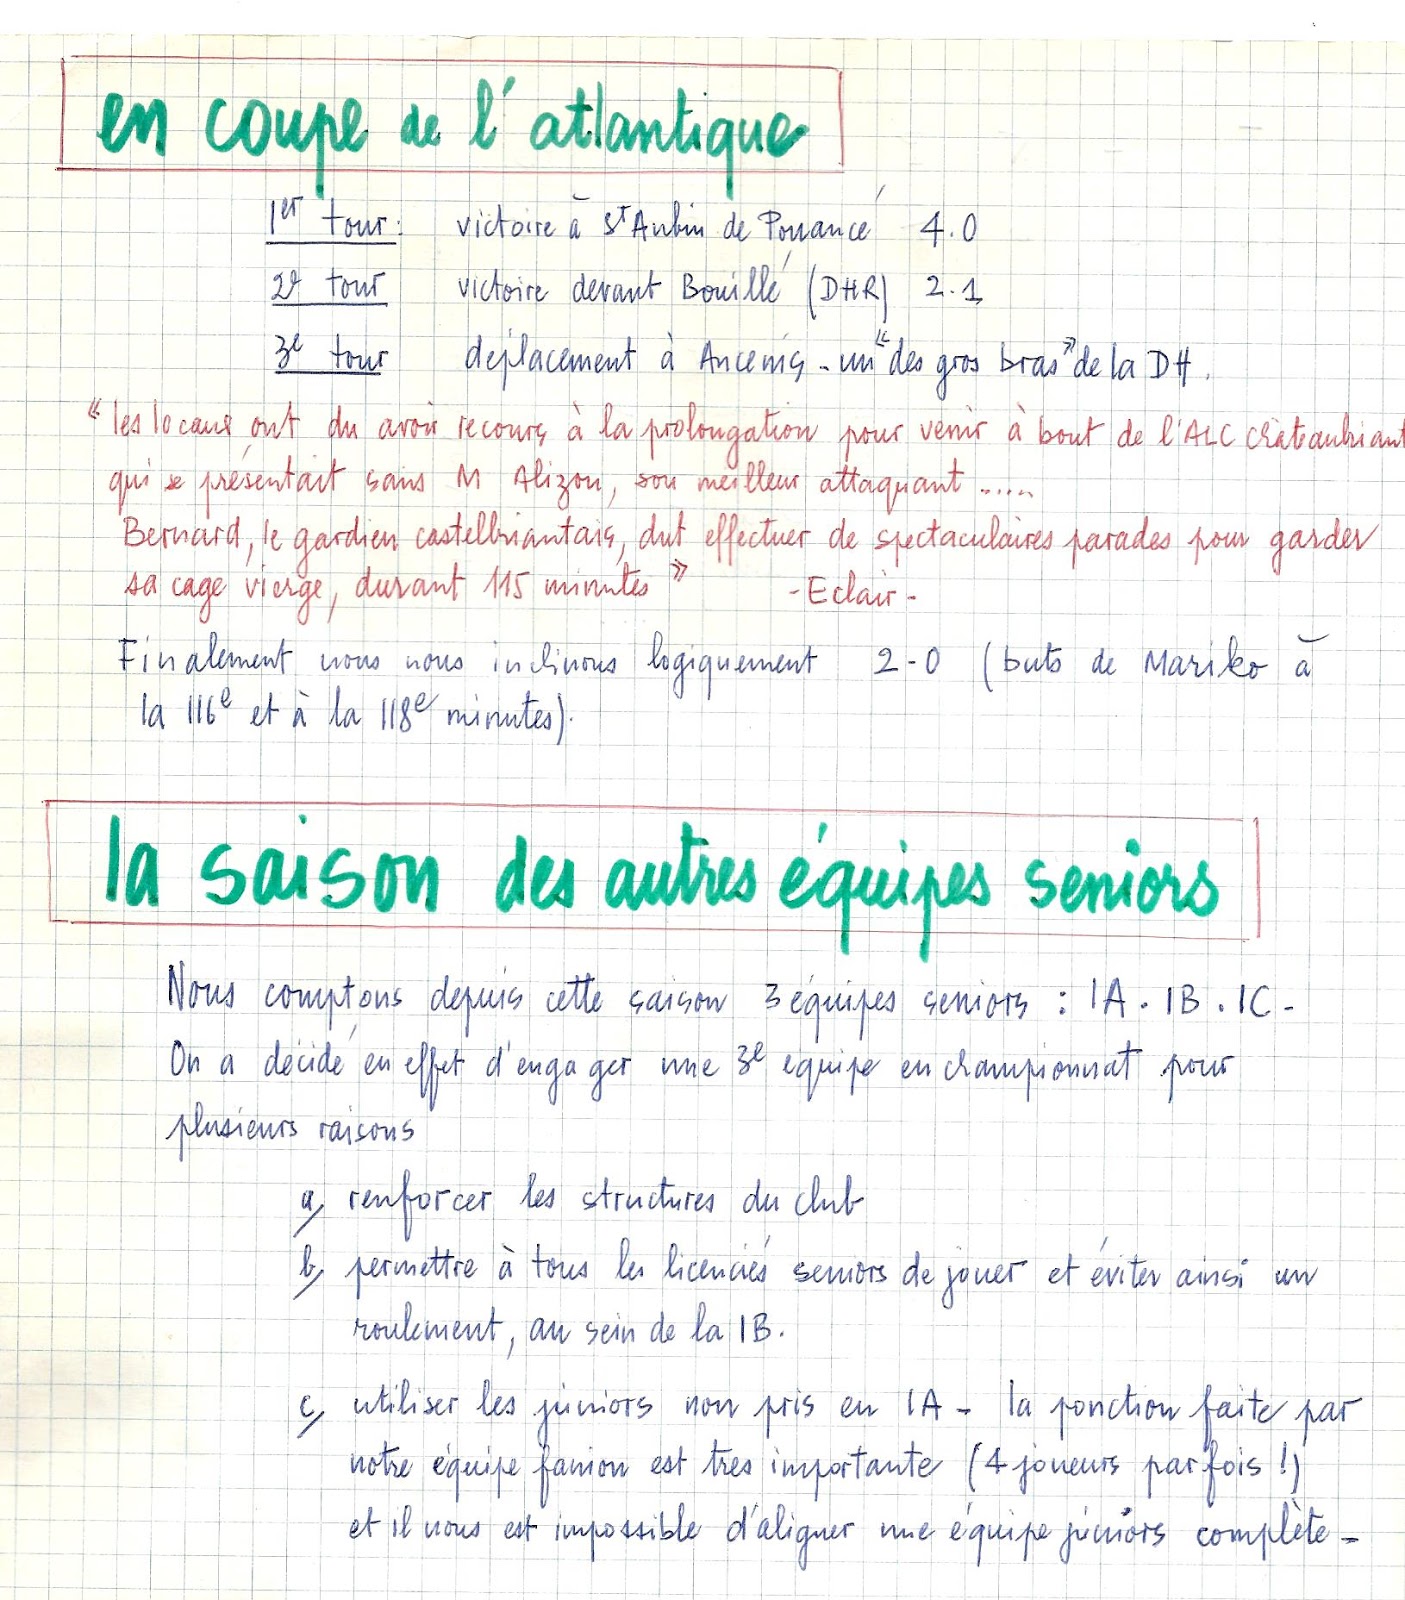 en coupe de l'atlantique
1er tour: victoire à St Aubin de Pouancé 4.0
2e tour victoire devant Bouillé (DHR) 2.1
3e tour déplacement à Ancenis - un "des gros bras" de la DH.
"les locaux ont du avoir recours à la prolongation pour venir à bout de l'ALC Châteaubriant
qui se présentait sans M Alizon, son meilleur attaquant .....
Bernard, le gardien castelbriantais, dut effectuer de spectaculaires parades pour garder
sa cage vierge, durant 115 minutes" - Eclair -
Finalement nous nous inclinons logiquement 2-0 (buts de Mariko à
la 116e et à la 118e minutes).
la saison des autres équipes seniors
Nous comptons depuis cette saison 3 équipes seniors : 1A . 1B . 1C -
On a décidé en effet d'engager une 3e équipe en championnat pour
plusieurs raisons
a, renforcer les structures du club
b, permettre à tous les licenciés seniors de jouer et éviter ainsi un
roulement, au sein de la 1B.
c, utiliser les juniors non pris en 1A - la ponction faite par
notre équipe fanion est très importante (4 joueurs parfois !)
et il nous est impossible d'aligner une équipe juniors complète -